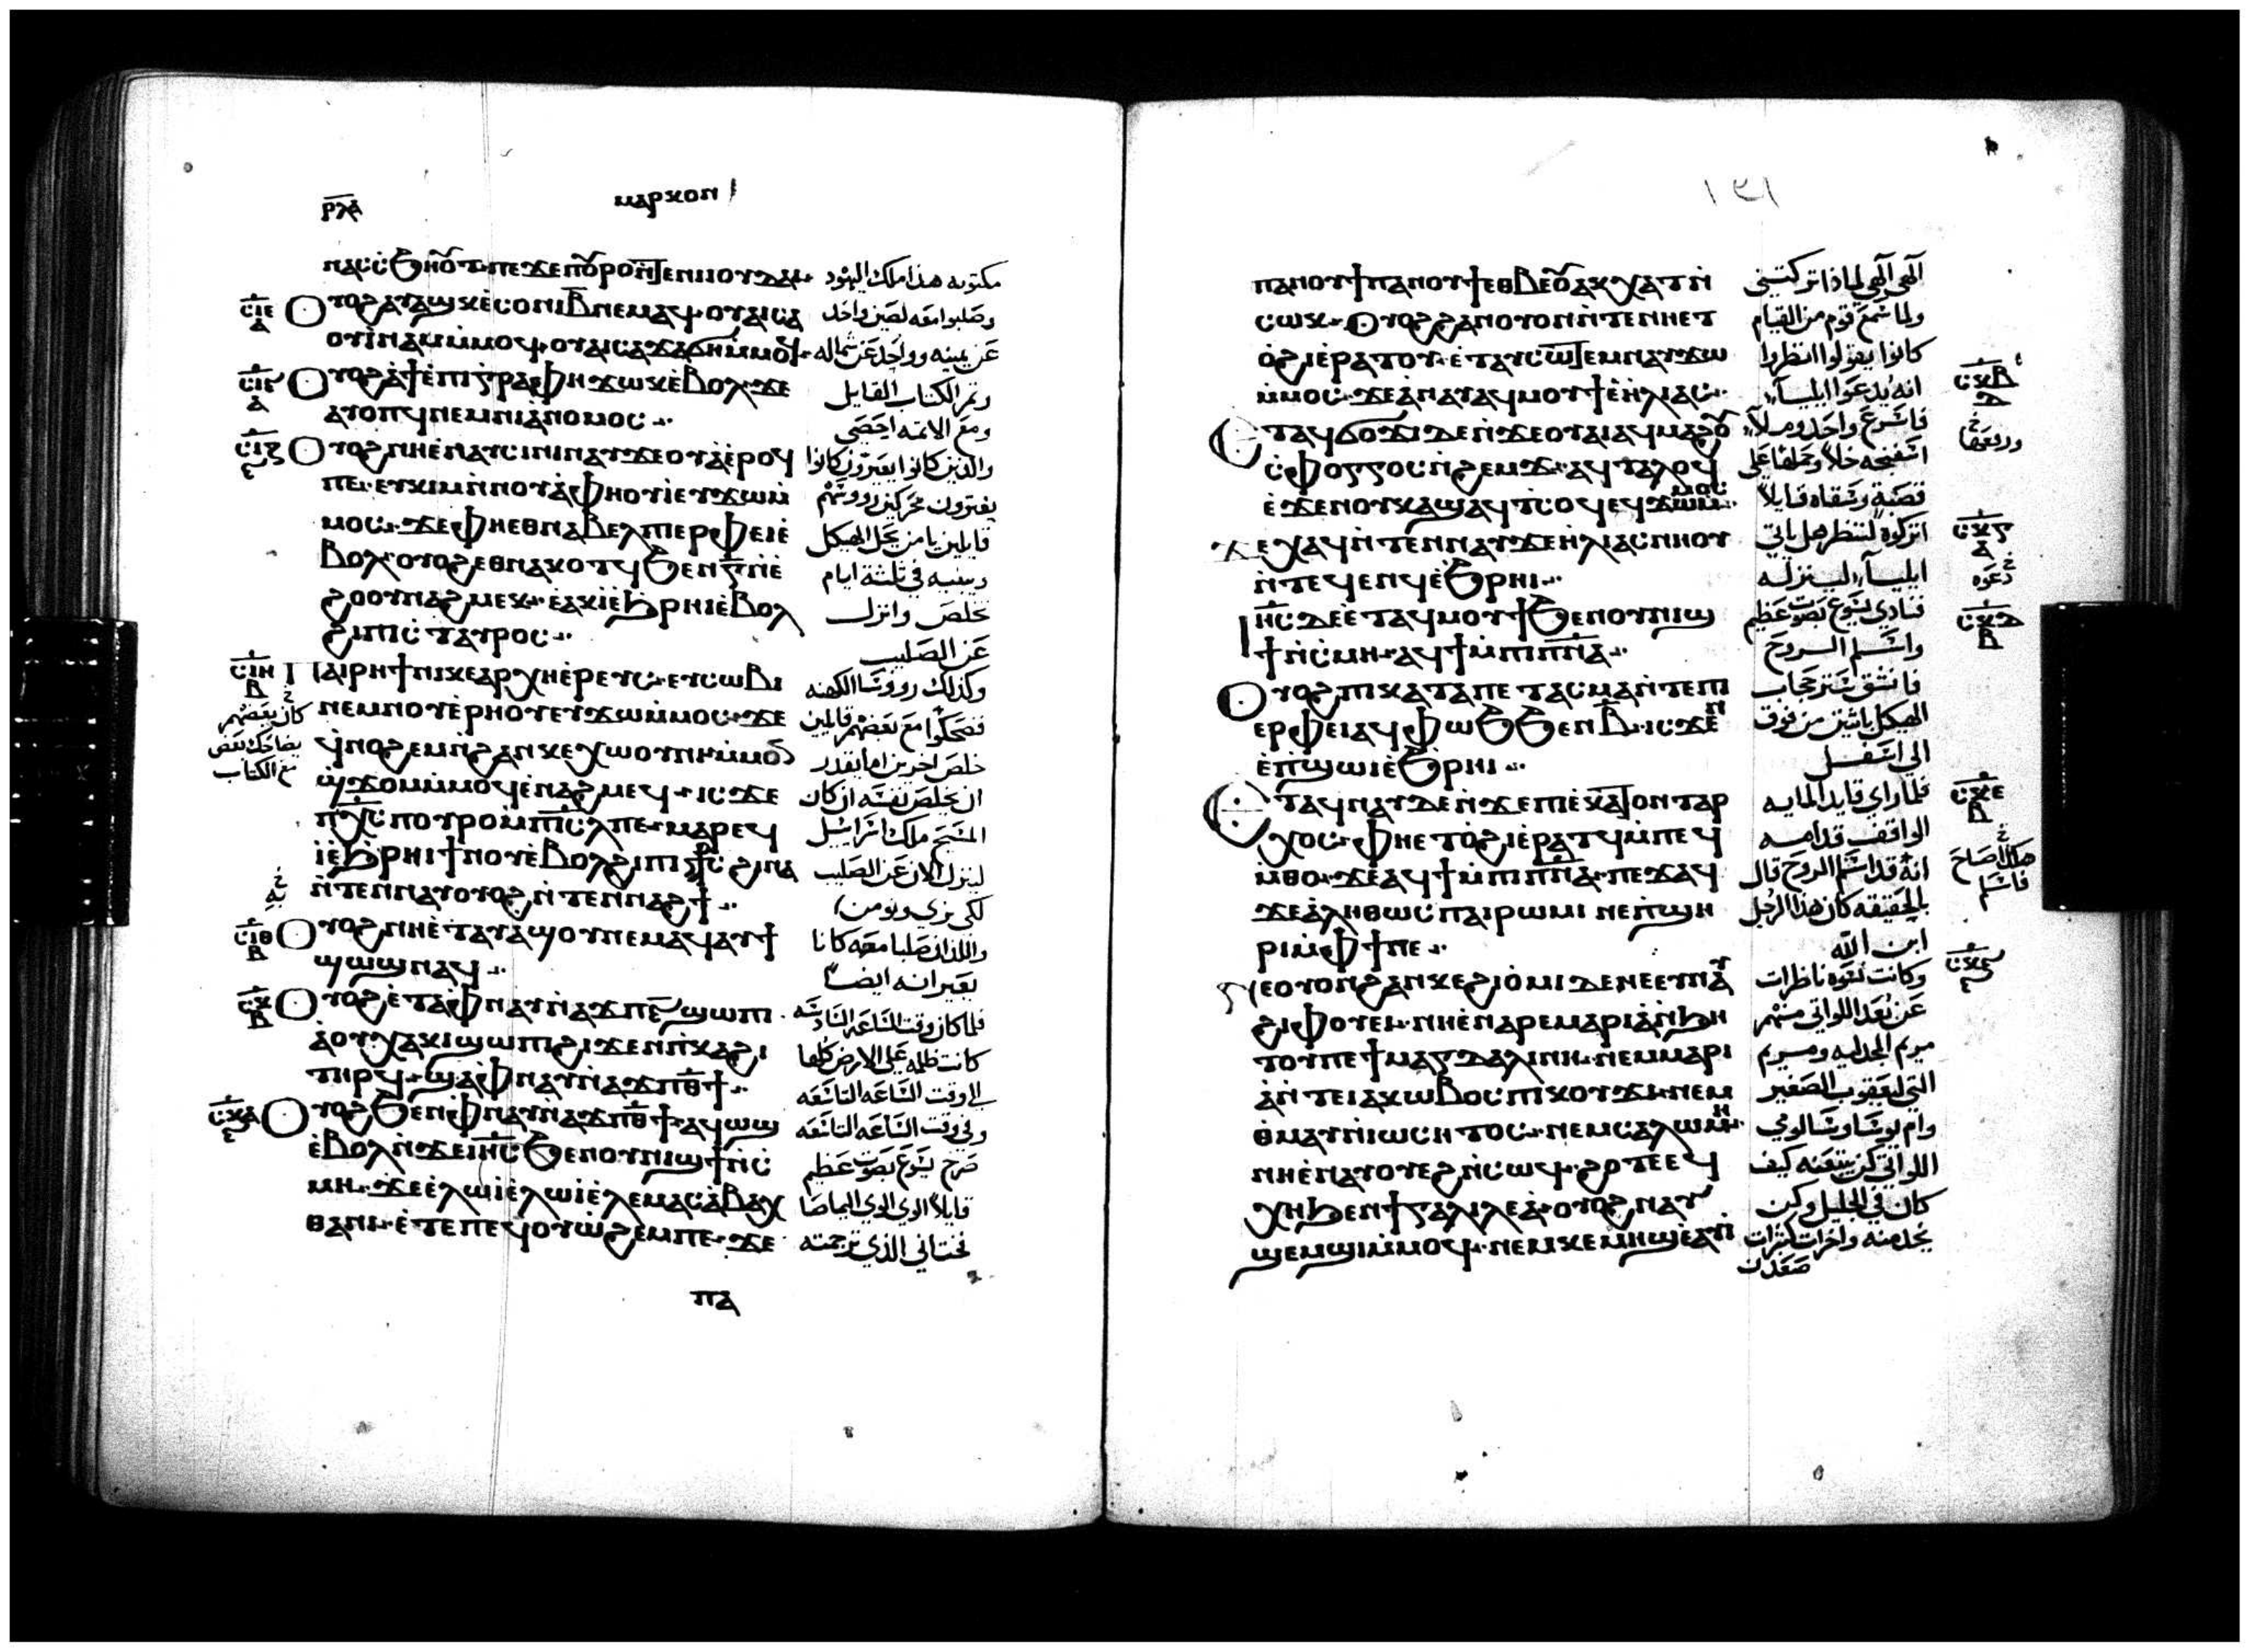 ⲣⲗⲁ ⲙⲁⲣⲕⲟⲛ
ⲛⲁⲥⲥϧⲏⲟⲩⲧ ⲡⲉ ϫⲉ ⲡⲟⲩⲣⲟ ⲛⲧⲉ ⲛⲓⲓⲟⲩⲇⲁⲓ مكتوبه هذا ملك اليهود
ⲟⲩⲟϩ ⲁⲩⲁϣ ⲕⲉⲥⲟⲛⲓ ⲃ ⲛⲉⲙⲁϥ ⲟⲩⲁⲓ ⲥⲁ وصلبوا معه لصين واحد
ⲟⲩⲓⲛⲁⲙ ⲙⲙⲟϥ ⲟⲩⲁⲓ ⲥⲁ ϫⲁϭⲏ ⲙⲙⲟϥ عن يمينه وواحد عن شماله
ⲟⲩⲟϩ ⲁϯⲉⲡⲓⲅⲣⲁⲫⲏ ϫⲱⲕ ⲉⲃⲟⲗ ϫⲉ وتم الكتاب القايل
ⲁⲩⲟⲡϥ ⲛⲉⲙ ⲛⲓⲁⲛⲟⲙⲟⲥ ومع الاثمه احصى
ⲟⲩⲟϩ ⲛⲏ ⲉⲛⲁⲩⲥⲓⲛⲓ ⲛⲁⲩϫⲉⲟⲩⲁ ⲉⲣⲟϥ والذين كانوا يعبرون كانوا
ⲡⲉ ⲉⲩⲕⲓⲙ ⲛⲛⲟⲩⲁⲫⲏⲟⲩⲓ ⲉⲩϫⲱ ⲙ يفترون محركين رووسهم
ⲙⲟⲥ ϫⲉ ⲫⲏ ⲉⲑⲛⲁⲃⲉⲗ ⲡⲓⲉⲣⲫⲉⲓ ⲉ قايلين يا من يحل الهيكل
ⲃⲟⲗ ⲟⲩⲟϩ ⲉⲑⲛⲁⲕⲟⲧϥ ϧⲉⲛ ⲅ ⲛⲉ ويبنيه في ثلثة ايام
ϩⲟⲟⲩ ⲛⲁϩⲙⲉⲕ ⲉⲁⲕⲓ ⲉϧⲣⲏⲓ ⲉⲃⲟⲗ تخلص وانزل
ϩⲓ ⲡⲓⲥⲧⲁⲩⲣⲟⲥ عن الصليب
ⲡⲁⲓⲣⲏϯ ⲛⲓⲕⲉⲁⲣⲭⲏⲉⲣⲉⲩⲥ ⲉⲩⲥⲱⲃⲓ وكذلك رووسا الكهنه
ⲛⲉⲙ ⲛⲟⲩⲉⲣⲏⲟⲩ ⲉⲩϫⲱ ⲙⲙⲟⲥ ϫⲉ فضحكوا مع بعضهم قايلين
ϥⲛⲟϩⲉⲙ ⲛϩⲁⲛⲕⲉⲭⲱⲟⲩⲛⲓ ⲙⲙⲟⲛ خلص اخرين اما يقدر
ϣϫⲟⲙ ⲙⲙⲟϥ ⲉⲛⲁϩⲙⲉϥ ⲓⲥϫⲉ ان يخلص نفسه ان كان
ⲡⲭⲥ ⲡⲟⲩⲣⲟ ⲙⲡⲓⲥⲗ ⲡⲉ ⲙⲁⲣⲉϥ المسيح ملك اسراييل
ⲓ ⲉϧⲣⲏⲓ ϯⲛⲟⲩ ⲉⲃⲟⲗ ϩⲓ ⲡⲓⲥⲧⲥ ϩⲓⲛⲁ لينزل الان عن الصليب
ⲛⲧⲉⲛⲛⲁⲩ ⲟⲩⲟϩ ⲛⲧⲉⲛⲛⲁϩϯ لكي نرى ونومن
ⲟⲩⲟϩ ⲛⲏ ⲉⲧⲁⲩⲁϣⲟⲩ ⲛⲉⲙⲁϥ ⲁⲩϯ واللذان صلبا معه كانا
ϣⲱϣ ⲛⲁϥ يعيرانه ايضا
ⲟⲩⲟϩ ⲉⲧⲁ ⲫⲛⲁⲩ ⲛⲁϫⲡ ⲋ ϣⲱⲡⲓ فلما كان وقت الساعه السادسه
ⲁⲟⲩⲭⲁⲕⲓ ϣⲱⲡⲓ ϩⲓϫⲉⲛ ⲡⲕⲁϩⲓ كانت ظلمه على الارض كلها
ⲧⲏⲣϥ ϣⲁ ⲫⲛⲁⲩ ⲛⲁϫⲡ ⲑϯ الى وقت الساعه التاسعه
ⲟⲩⲟϩ ϧⲉⲛ ⲫⲛⲁⲩ ⲛⲁϫⲡ ⲑϯ ⲁϥⲱϣ وفي وقت الساعه التاسعه
ⲉⲃⲟⲗ ⲛϫⲉ ⲓⲏⲥ ϧⲉⲛ ⲟⲩⲛⲓϣϯ ⲛⲥ صرخ يسوع بصوت عظيم
ⲙⲏ ϫⲉ ⲉⲗⲱⲓ ⲉⲗⲱⲓ ⲉⲗⲉⲙⲁ ⲥⲁⲃⲁⲭ قايلا الوي الوي اليماصا
ⲑⲁⲛⲓ ⲉⲧⲉ ⲡⲉϥⲟⲩⲱϩⲉⲙ ⲡⲉ ϫⲉ فختاني الذي ترجمته
ⲡⲁ
ⲥⲓⲉ ⲁ
ⲥⲓⲋ ⲁ
ⲥⲓⲍ ⲋ
ⲥⲓⲏ ⲃ
كان بعضهم
يضاحك بعض
مع الكتاب
به
ⲥⲓⲑ ⲃ
ⲥⲕ ⲃ
ⲥⲕⲁ ⲋ
١٣١
ⲡⲁⲛⲟⲩϯ ⲡⲁⲛⲟⲩϯ ⲉⲑⲃⲉⲟⲩ ⲁⲕⲭⲁⲧ ⲛ الهي الهي لماذا تركتني
ⲥⲱⲕ ⲟⲩⲟϩ ϩⲁⲛⲟⲩⲟⲛ ⲛⲧⲉ ⲛⲏ ⲉⲧ ولما سمع قوم من القيام
ⲟϩⲓ ⲉⲣⲁⲧⲟⲩ ⲉⲧⲁⲩⲥⲱⲧⲉⲙ ⲛⲁⲩϫⲱ كانوا يقولوا انظروا
ⲙⲙⲟⲥ ϫⲉ ⲁⲛⲁⲩ ⲁϥⲙⲟⲩϯ ⲉⲏⲗⲓⲁⲥ انه يدعوا ايلياء
ⲉⲧⲁϥϭⲟϫⲓ ⲇⲉ ⲛϫⲉ ⲟⲩⲁⲓ ⲁϥⲙⲁϩ ⲟⲩ فاسرع واحد وملا
ⲥⲫⲟⲅⲅⲟⲥ ⲛϩⲉⲙϫ ⲁϥⲧⲁⲗⲟϥ اسفنجه خلا وحملها على
ⲉϫⲉⲛ ⲟⲩⲕⲁϣ ⲁϥⲧⲥⲟϥ ⲉϥϫⲱ ⲙⲙⲟⲥ قصبة وسقاه قايلا
ϫⲉ ⲭⲁϥ ⲛⲧⲉⲛⲛⲁⲩ ϫⲉ ⲏⲗⲓⲁⲥ ⲛⲏⲟⲩ اتركوه لننظر هل ياتي
ⲛⲧⲉϥⲉⲛϥ ⲉϧⲣⲏⲓ ايلياء لينزله
ⲓⲏⲥ ⲇⲉ ⲉⲧⲁϥⲙⲟⲩϯ ϧⲉⲛ ⲟⲩⲛⲓϣ فنادى يسوع بصوت عظيم
ϯ ⲛⲥⲙⲏ ⲁϥϯ ⲙⲡⲓⲡⲛⲁ واسلم الروح
ⲟⲩⲟϩ ⲡⲓⲕⲁⲧⲁⲡⲉⲧⲁⲥⲙⲁ ⲛⲧⲉ ⲡⲓ فانشق ستر حجاب
ⲉⲣⲫⲉⲓ ⲁϥⲫⲱϧ ϧⲉⲛ ⲃ ⲓⲥϫⲉⲛ الهيكل باثنين من فوق
ⲉⲡϣⲱⲓ ⲉϧⲣⲏⲓ الى اسفل
ⲉⲧⲁϥⲛⲁⲩ ⲇⲉ ⲛϫⲉ ⲡⲓⲉⲕⲁⲧⲟⲛⲧⲁⲣ فلما راى قايد المايه
ⲭⲟⲥ ⲫⲏ ⲉⲧⲟϩⲓ ⲉⲣⲁⲧϥ ⲙⲡⲉϥ الواقف قدامه
ⲙⲑⲟ ϫⲉ ⲁϥϯ ⲙⲡⲓⲡⲛⲁ ⲡⲉϫⲁϥ انه قد اسلم الروح قال
ϫⲉ ⲁⲗⲏⲑⲱⲥ ⲡⲁⲓⲣⲱⲙⲓ ⲛⲉ ⲡϣⲏ بالحقيقه كان هذا الرجل
ⲣⲓ ⲙⲫϯ ⲡⲉ ابن الله
ⲛⲉⲟⲩⲟⲛ ϩⲁⲛⲕⲉϩⲓⲟⲙⲓ ⲇⲉ ⲛⲉ ⲉⲩⲛⲁⲩ وكانت نسوه ناظرات
ϩⲓⲫⲟⲩⲉⲓ ⲛⲏ ⲉⲛⲁⲣⲉ ⲙⲁⲣⲓⲁ ⲛϧⲏ عن بعد اللواتي منهم
ⲧⲟⲩ ⲡⲉ ϯⲙⲁⲅⲇⲁⲗⲓⲛⲏ ⲛⲉⲙ ⲙⲁⲣⲓ مريم المجدليه ومريم
ⲁ ⲛⲧⲉ ⲓⲁⲕⲱⲃⲟⲥ ⲡⲓⲕⲟⲩϫⲓ ⲛⲉⲙ التي ليعقوب الصغير
ⲑⲙⲁⲩ ⲛⲓⲱⲥⲏⲧⲟⲥ ⲛⲉⲙ ⲥⲁⲗⲱⲙⲏ وام يوسا وسالومي
ⲛⲏ ⲉⲛⲁⲩⲟⲩⲉϩ ⲛⲥⲱϥ ϩⲟⲧⲉ ⲉϥ اللواتي كن يتبعنه كيف
ⲭⲏ ϧⲉⲛ ϯⲅⲁⲗⲓⲗⲉⲁ ⲟⲩⲟϩ ⲛⲁⲩ كان في الجليل وكن
ϣⲉⲙϣⲓ ⲙⲙⲟϥ ⲛⲉⲙ ⲕⲉⲙⲏϣ ⲉⲁⲩⲓ يخدمنه واخرات كثيرات
صعدن
ⲥⲕⲃ ⲇ
ورفعها
ⲥⲕⲅ ⲁ
دعوه
ⲥⲕⲇ ⲃ
ⲥⲕⲉ ⲃ
هكذا صاح
فاسلم
ⲥⲕⲋ ⲋ